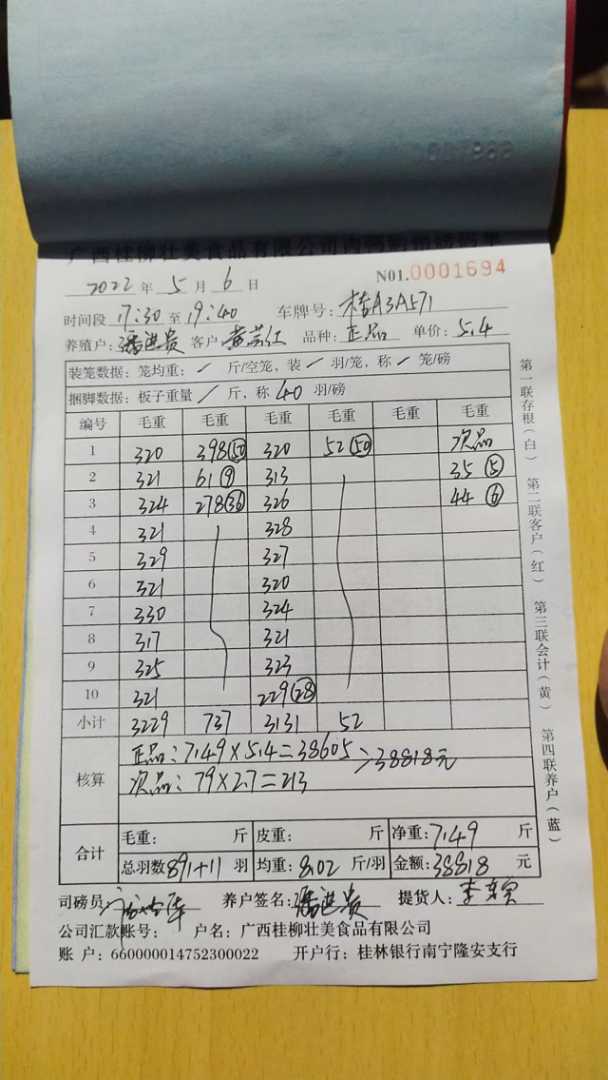 广西桂柳壮美食品有限公司肉鸭
N01.0001694
2022 年 5 月 6 日
时间段 17:30 至 19:40 车牌号: 桂A3A571
养殖户: 潘进贵 客户 品种: 正品 单价: 5.4
装笼数据: 笼均重: / 斤/空笼, 装 / 羽/笼, 称 / 笼/磅
捆脚数据: 板子重量 / 斤, 称 40 羽/磅
编号 毛重 毛重 毛重 毛重 毛重 毛重
1 320 398(50) 320 52(50) 次品
2 321 61(9) 313 35(5)
3 324 278(36) 326 44(6)
4 321 328
5 329 327
6 321 320
7 330 324
8 317 321
9 325 323
10 321 229(28)
小计 3229 737 3131 52
核算
正品: 7149×5.4=38605
>38818元
次品: 79×2.7=213
合计
毛重: 斤 皮重: 斤 净重: 7149 斤
总羽数 891+11 羽 均重: 8.02 斤/羽 金额: 38818 元
司磅员 养户签名: 潘进贵 提货人: 李
公司汇款账号: 户名: 广西桂柳壮美食品有限公司
账 户: 660000014752300022 开户行: 桂林银行南宁隆安支行
第一联存根(白) 第二联客户(红) 第三联会计(黄) 第四联养户(蓝)